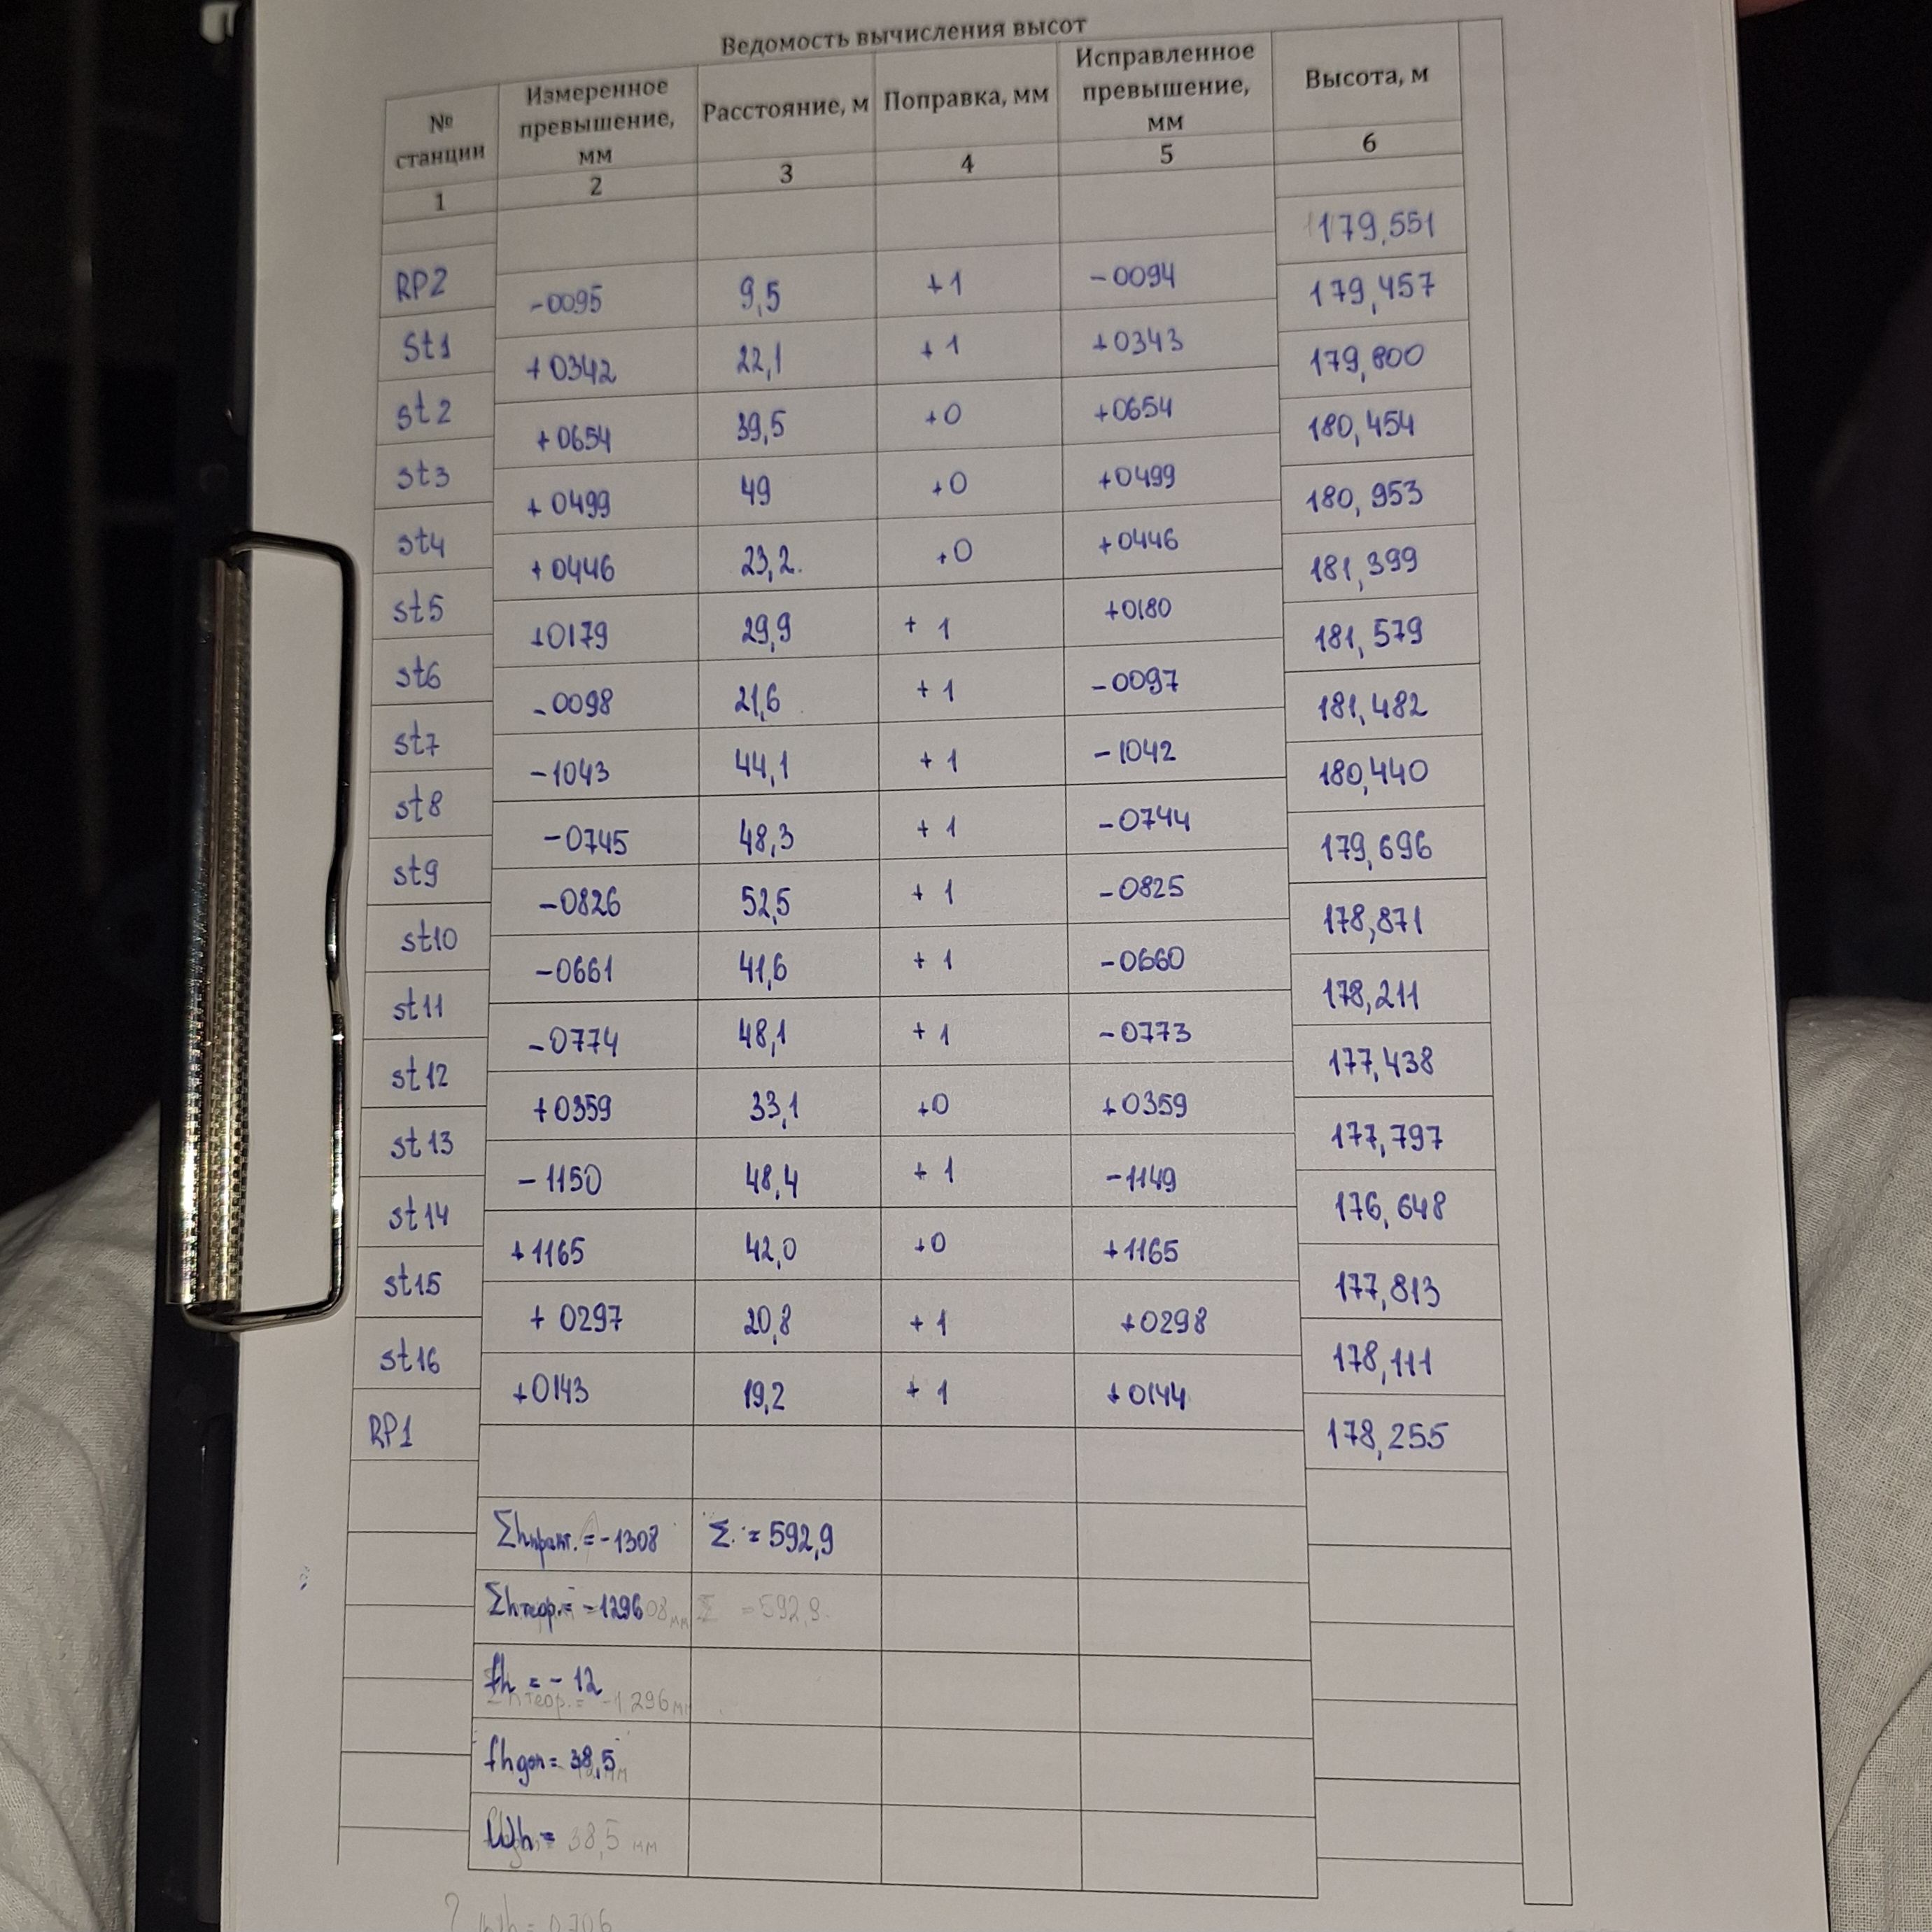 Ведомость вычисления высот
№ станции | Измеренное превышение, мм | Расстояние, м | Поправка, мм | Исправленное превышение, мм | Высота, м
1 | 2 | 3 | 4 | 5 | 6
179,551
RP2
-0095 | 9,5 | +1 | -0094 | 179,457
St1
+0342 | 22,1 | +1 | +0343 | 179,800
st2
+0654 | 39,5 | +0 | +0654 | 180,454
st3
+0499 | 49 | +0 | +0499 | 180,953
st4
+0446 | 23,2. | +0 | +0446 | 181,399
st5
+0179 | 29,9 | +1 | +0180 | 181,579
st6
-0098 | 21,6 | +1 | -0097 | 181,482
st7
-1043 | 44,1 | +1 | -1042 | 180,440
st8
-0745 | 48,3 | +1 | -0744 | 179,696
st9
-0826 | 52,5 | +1 | -0825 | 178,871
st10
-0661 | 41,6 | +1 | -0660 | 178,211
st11
-0774 | 48,1 | +1 | -0773 | 177,438
st12
+0359 | 33,1 | +0 | +0359 | 177,797
st13
-1150 | 48,4 | +1 | -1149 | 176,648
st14
+1165 | 42,0 | +0 | +1165 | 177,813
st15
+0297 | 20,8 | +1 | +0298 | 178,111
st16
+0143 | 19,2 | +1 | +0144 | 178,255
RP1
Σhпракт. = -1308 | Σ = 592,9
Σhтеор. = -1296 | Σ = 592,9
fh = -12
Σhтеор. = -1296 мм
fhдоп = 38,5
ωh = 38,5 мм